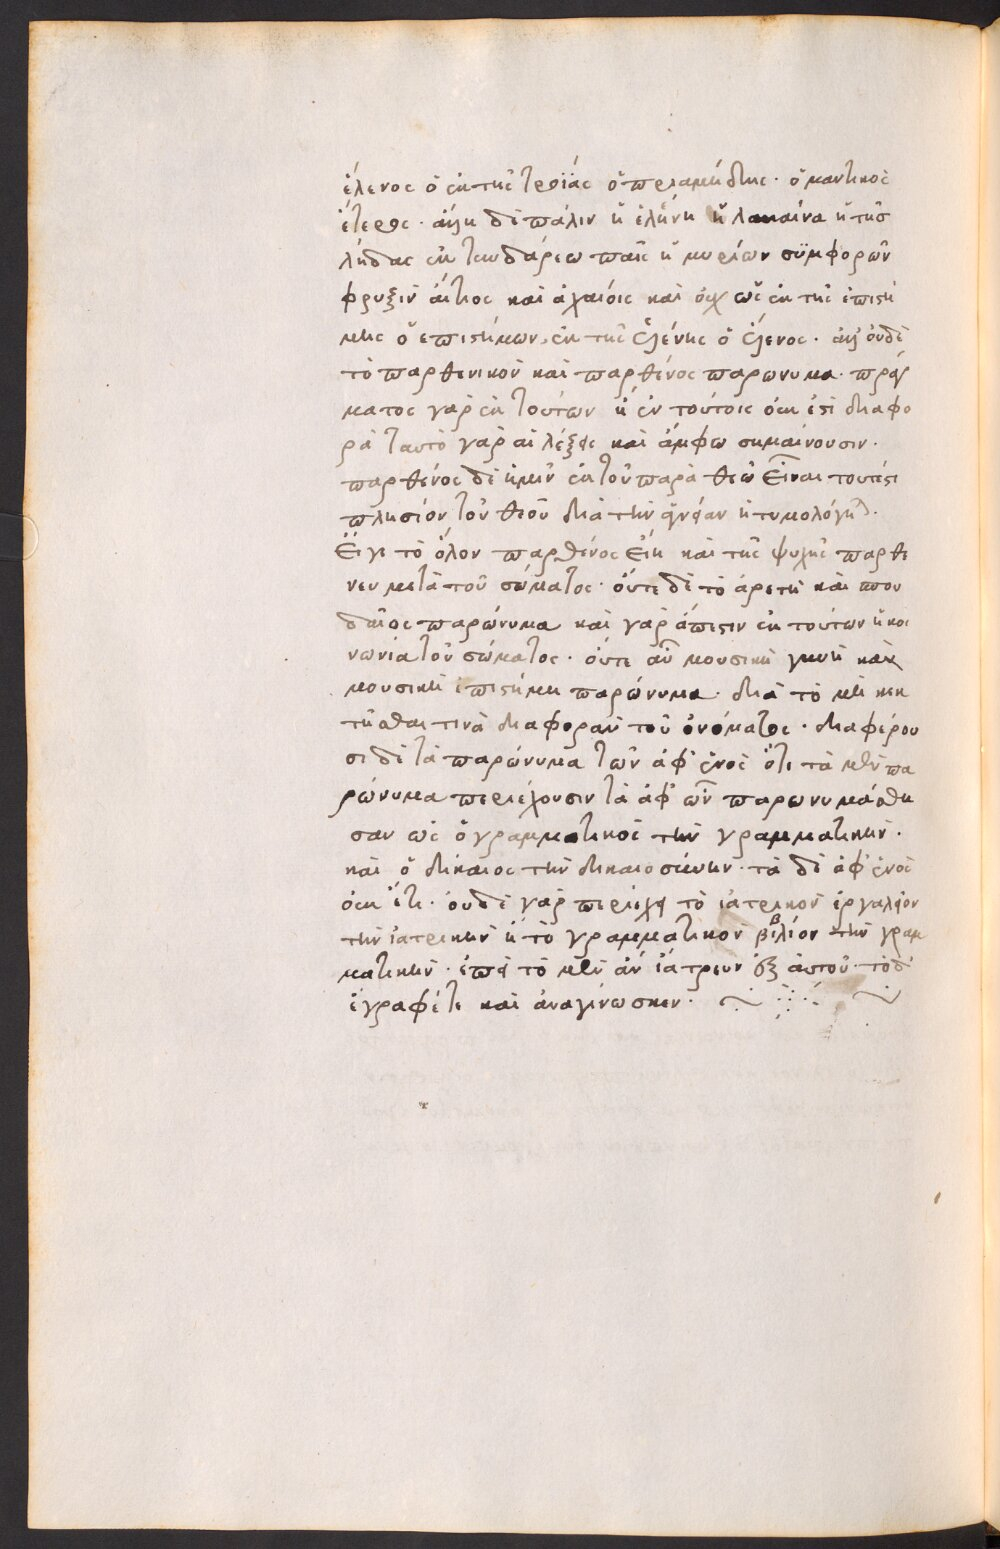 ἕλενος ὁ ἐκ τῆς τροΐας ὁ πριαμίδης· ὁ μαντικὸς
ἕτερος· ἄλλη δὲ πάλιν ἡ ἑλένη ἡ λακαίνα ἡ τῆσ
λήδας ἐκ τυνδάρεω παῖς ἡ μυρίων συμφορῶν
φρυξὶν αἴτιος καὶ ἀχαιοῖς καὶ οὐχ ὡς ἐκ τῆς ἐπιστή
μης ὁ ἐπιστήμων, ἐκ τῆς ἑλένης ὁ ἕλενος· ἀλλ' οὐδὲ
τὸ παρθενικὸν καὶ παρθένος παρωνυμα· πράγ
ματος γὰρ ἐκ τούτων ἢ ἐν τούτοις οὐκ ἔστι διαφο
ρὰ ταυτὸ γὰρ αἱ λέξεις καὶ ἄμφω σημαίνουσιν·
παρθένος δὲ ἡμῖν ἐκ τοῦ παρὰ θεῶ εἶναι τουτέστι
πλησίον τοῦ θεοῦ διὰ τὴν ἁγνείαν ἠτυμολόγηται·
Εἴγε τὸ ὅλον παρθένος εἴη καὶ τῆς ψυχῆς παρθε
νευ μετὰ τοῦ σώματος· οὔτε δὲ τὸ ἀρετὴ καὶ σπου
δαῖος παρώνυμα καὶ γὰρ ἄπεστιν ἐκ τούτων ἡ κοι
νωνία τοῦ σώματος· οὔτε αὖ μουσικὴ γυνὴ καὶ
μουσικὴ ἐπιστήμη παρώνυμα· διὰ τὸ μὴ κεκ
τῆσθαι τινὰ διαφορὰν τοῦ ὀνόματος· διαφέρου
σι δὲ τὰ παρώνυμα τῶν ἀφ' ἑνὸς ὅτι τὰ μὲν πα
ρώνυμα περιέχουσιν τὰ ἀφ' ὧν παρωνυμάσθη
σαν ὡς ὁ γραμματικὸς τὴν γραμματικήν·
καὶ ὁ δίκαιος τὴν δικαιοσύνην· τὰ δὲ ἀφ' ἑνὸς
οὐκ ἔτι· οὐδὲ γὰρ περιέχει τὸ ἰατρικὸν ἐργαλεῖον
τὴν ἰατρικὴν ἢ τὸ γραμματικὸν βιβλίον τὴν γραμ
ματικήν· ἐπεὶ τὸ μὲν ἂν ἰάτρευν ἐξ αὐτοῦ· τὸ δ'
ἔγραφέ τε καὶ ἀναγίνωσκεν·